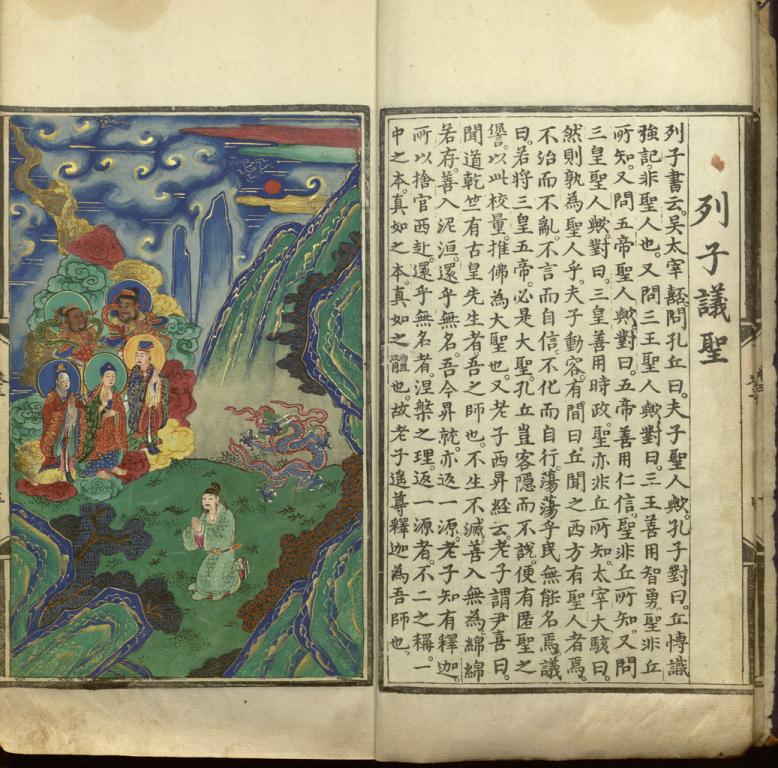 列子議聖
列子書云。吳太宰嚭問孔丘曰。夫子聖人歟。孔子對曰。丘愽識
強記。非聖人也。又問三王聖人歟。對曰。三王善用智勇。聖非丘
所知。又問五帝聖人歟。對曰。五帝善用仁信。聖非丘所知。又問
三皇聖人歟。對曰。三皇善用時政。聖亦非丘所知。太宰大駭曰。
然則孰為聖人乎。夫子動容。有間曰。丘聞之西方有聖人者焉。
不治而不亂。不言而自信。不化而自行。蕩蕩乎民無能名焉。議
曰。若將三皇五帝。必是大聖。孔丘豈容隱而不說。便有匿聖之
諐。以此校量。推佛為大聖也。又老子西昇經云。老子謂尹喜曰。
聞道乾竺有古皇先生者。吾之師也。不生不滅。善入無為。綿綿
若存。善入泥洹。還乎無名。吾今昇就。亦返一源。老子知有釋迦。
所以捨官西赴。還乎無名者。涅槃之理。返一源者。不二之稱。一
中之本。真如之本。真如之體也。故老子遙尊釋迦為吾師也。